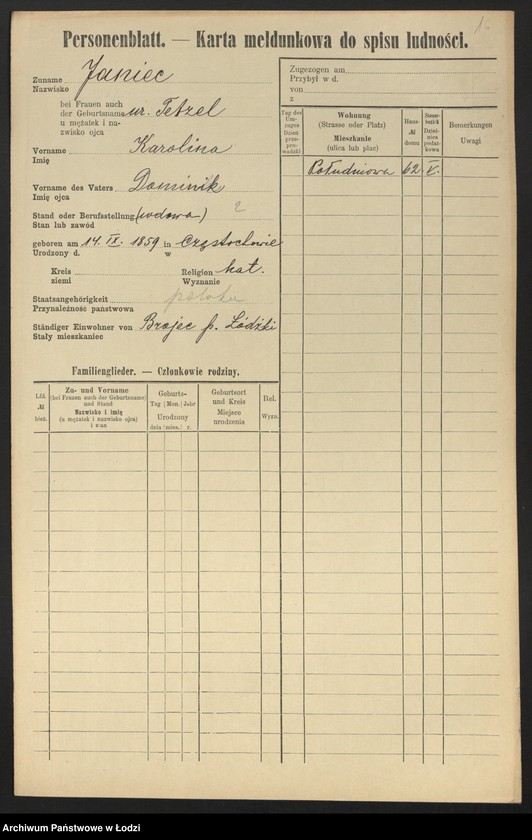 16
Personenblatt. — Karta meldunkowa do spisu ludności.
Zuname Janiec
Nazwisko
bei Frauen auch
der Geburtsname ur. Tetzel
u mężatek i na-
zwisko ojca
Vorname Karolina
Imię
Vorname des Vaters Dominik
Imię ojca
Stand oder Berufsstellung (wdowa) 2
Stan lub zawód
geboren am 14. IX. 1859 in Częstochowie
Urodzony d. w
Kreis Religion kat.
ziemi Wyznanie
Staatsangehörigkeit polska
Przynależność państwowa
Ständiger Einwohner von Brojec p. Łódzki
Stały mieszkaniec
Familienglieder. — Członkowie rodziny.
Lfd. № bież.
Zu- und Vorname
(bei Frauen auch der Geburtsname)
und Stand
Nazwisko i imię
(u mężatek i nazwisko ojca)
i stan
Geburts-
Tag | Mon. | Jahr
Urodzony
dnia | mies. | r.
Geburtsort
und Kreis
Miejsce
urodzenia
Rel.
Wyzn.
Zugezogen am
Przybył w d.
von
z
Tag des
Um-
zuges
Dzień
prze-
prowadzki
Wohnung
(Strasse oder Platz)
Mieszkanie
(ulica lub plac)
Haus-
№
domu
Steuer-
bezirk
Dziel-
nica
podat-
kowa
Bemerkungen
Uwagi
Południowa 62 V.
Archiwum Państwowe w Łodzi